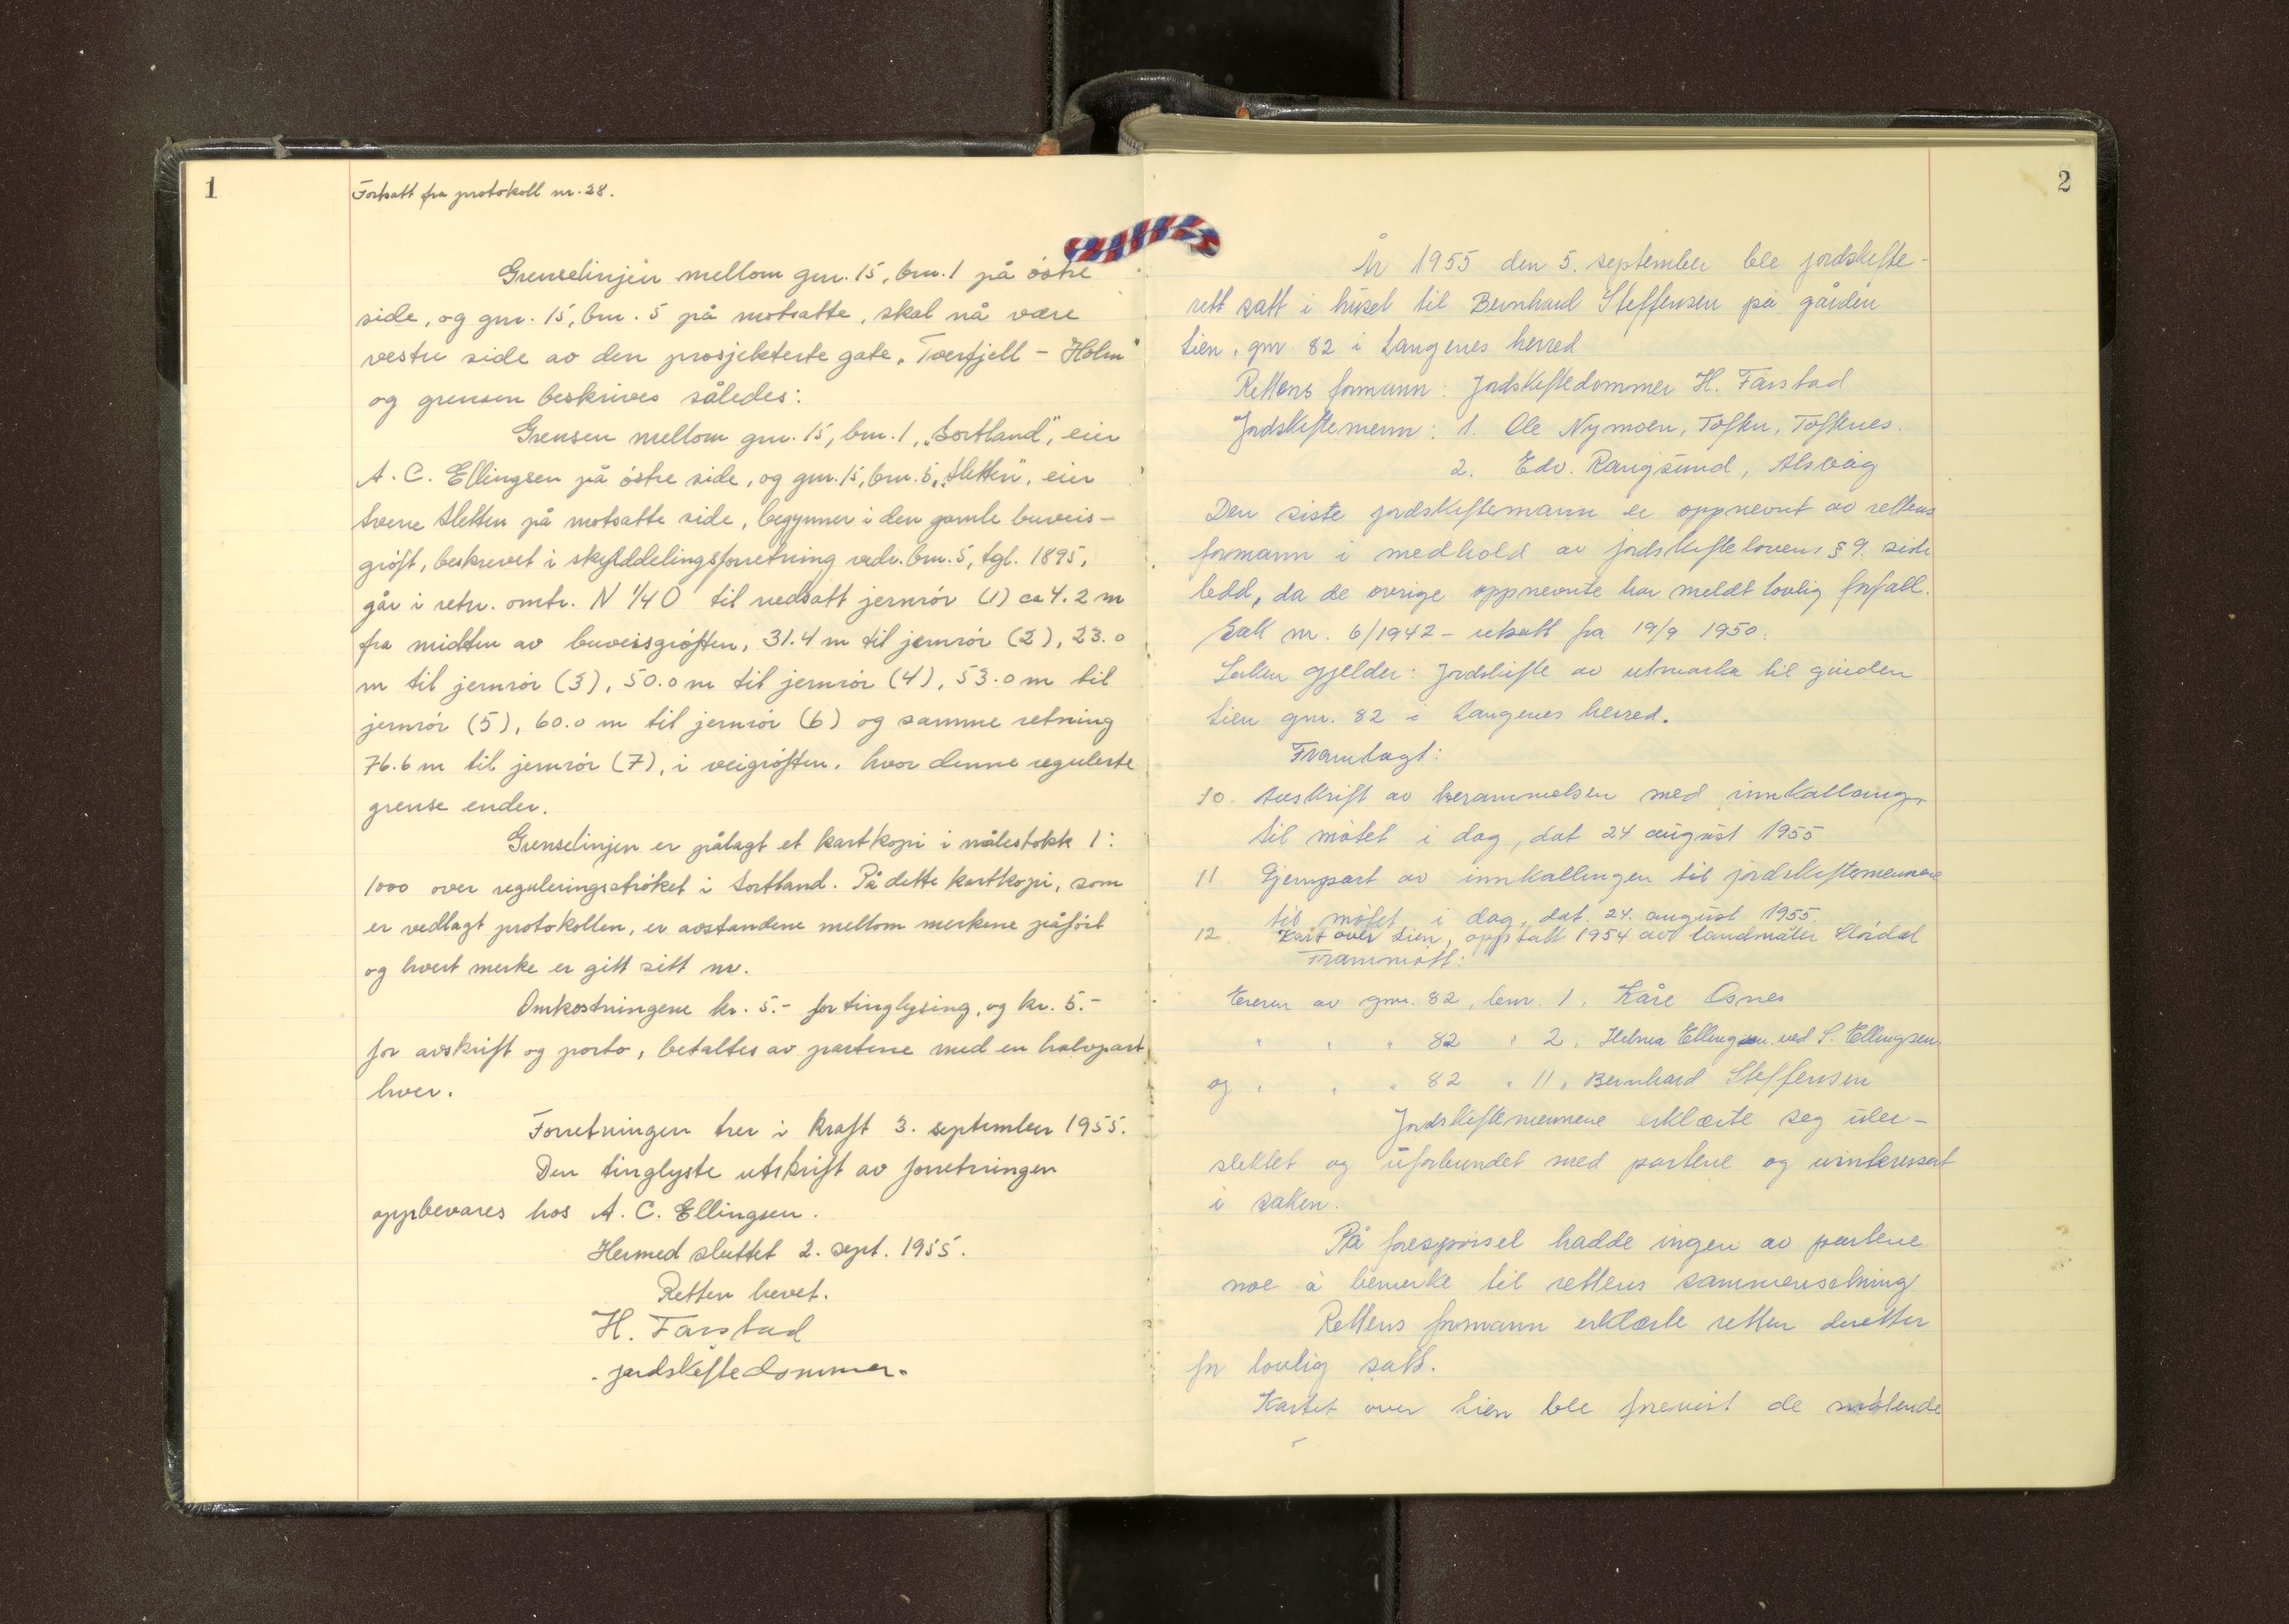 1
Fortsatt fra protokoll nr. 28.
Grenselinjen mellom gnr. 15, bnr. 1 på östre
side, og gnr. 15, bnr. 5 på motsatte, skal nå være
vestre side av den prosjekterte gate „Tverfjell - Holm"
og grensen beskrives således:
Grensen mellom gnr. 15, bnr. 1, „Sortland", eier
A. C. Ellingsen på östre side, og gnr. 15, bnr. 5, „Sletten", eier
Sverre Sletten på motsatte side, begynner i den gamle buveis-
gröft, beskrevet i skylddelingsforretning vedr. bnr. 5, tgl. 1895,
går i retn. omtr. N 1/4 O til nedsatt jernrör (1) ca 4.2 m
fra midten av buveisgröften, 31.4 m til jernrör (2), 23.0
m til jernrör (3), 50.0 m til jernrör (4), 53.0 m til
jernrör (5), 60.0 m til jernrör (6) og samme retning
76.6 m til jernrör (7), i veigröften, hvor denne regulerte
grense ender.
Grenselinjen er pålagt et kartkopi i målestokk 1:
1000 over reguleringsströket i Sortland. På dette kartkopi, som
er vedlagt protokollen, er avstandene mellom merkene påfört
og hvert merke er gitt sitt nr.
Omkostningene kr. 5.- for tinglysing, og kr. 5.-
for avskrift og porto, betaltes av partene med en halvpart
hver.
Forretningen trer i kraft 3. september 1955.
Den tinglyste utskrift av forretningen
oppbevares hos A. C. Ellingsen.
Hermed sluttet 2. sept. 1955.
Retten hevet.
H. Farstad
jordskiftedommer.
2
År 1955 den 5. september ble jordskifte-
rett satt i huset til Bernhard Steffensen på gården
Lien, gnr 82 i Langenes herred
Rettens formann: Jordskiftedommer H. Farstad
Jordskiftemenn: 1. Ole Nymoen, Toften, Toftenes.
2. Edv. Rangsund, Alsvåg
Den siste jordskiftemann er oppnevnt av rettens
formann i medhold av jordskiftelovens § 9. siste
ledd, da de övrige oppnevnte har meldt lovlig forfall.
Sak nr. 6/1942 - utsatt fra 19/9 1950.
Saken gjelder: Jordskifte av utmarka til gården
Lien gnr. 82 i Langenes herred.
Framlagt:
10. Avskrift av berammelsen med innkallang
til mötet i dag, dat 24 august 1955
11 Gjenpart av innkallingen til jordskiftemennene
til mötet i dag, dat. 24. august 1955.
12. Kart over Lien, opptatt 1954 av landmåler
Frammött:
Eieren av gnr. 82, bnr. 1, Kåre Osnes
" " " 82 " 2, Helma Ellingsen ved S. Ellingsen
og " " " 82 " 11, Bernhard Steffensen
Jordskiftemennene erklærte seg ube-
slektet og uforbundet med partene og uinteressert
i saken.
På forespörsel hadde ingen av partene
noe å bemerke til rettens sammensetning
Rettens formann erklærte retten deretter
for lovlig satt.
Kartet over Lien ble forevist de mötende